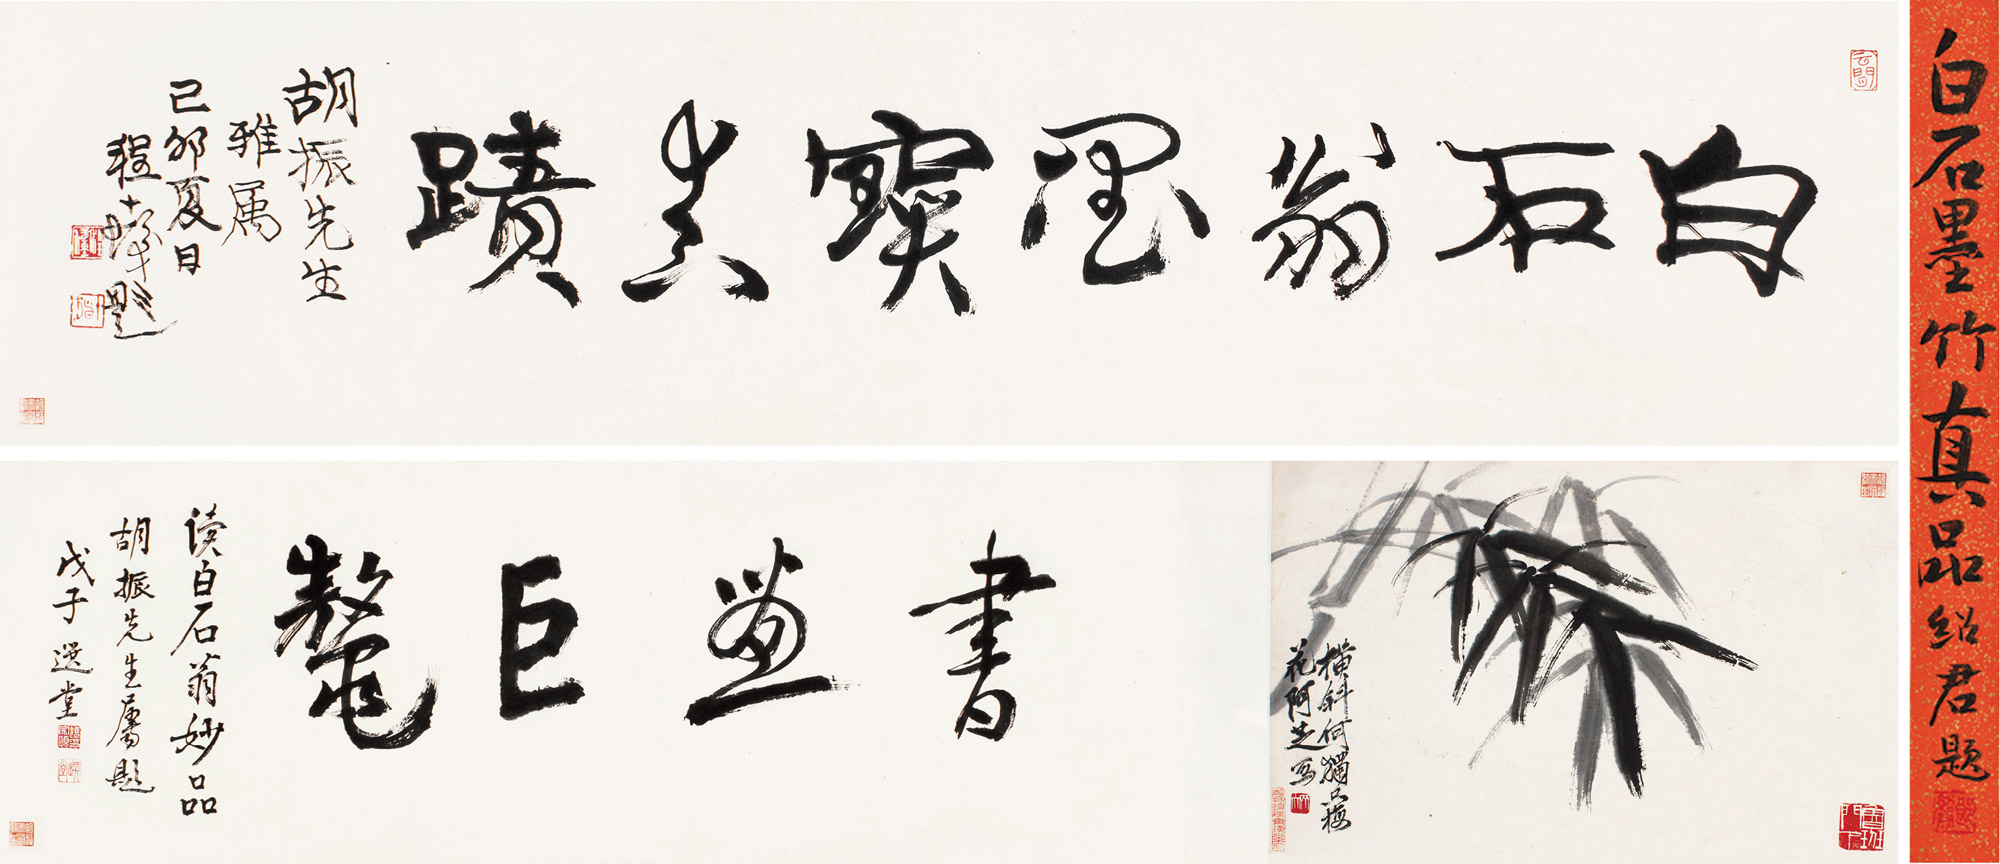 白石墨竹真品 紹君題
白石翁墨寶真蹟
胡振先生
雅属
己卯夏日
程十髮題
書畫巨鼇
读白石翁妙品
胡振先生屬題
戊子 選堂
橫斜何獨只梅
花 阿芝写
雲間
魯班門下